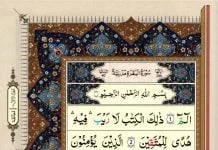 سُورَةُ الْبَقَرَةِ مَدَنِيَّةٌ
بِسْمِ اللهِ الرَّحْمٰنِ الرَّحِيْمِ
الٓمّٓ ۚ ذٰلِكَ الْكِتٰبُ لَا رَيْبَ ۛۖ فِيْهِ ۛۚ
هُدًى لِّلْمُتَّقِيْنَ الَّذِيْنَ يُؤْمِنُوْنَ